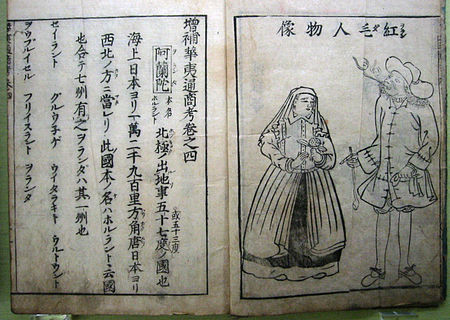 紅毛人物像
增補華夷通商考卷之四
阿蘭陀 本名ホルラント 北極出地事五十七度ノ國也 或五十三度
海上日本ヨリ一萬二千九百里方角唐日本ヨリ
西北ノ方ニ當レリ此國本ノ名ハホルラントト云國
也合テ七州有之ヲランダハ其一州也
ゼイラント グルウ子ゲ ウイタラキト ウルトウント
ヲウフルイセル フリイスラント ヲランダ